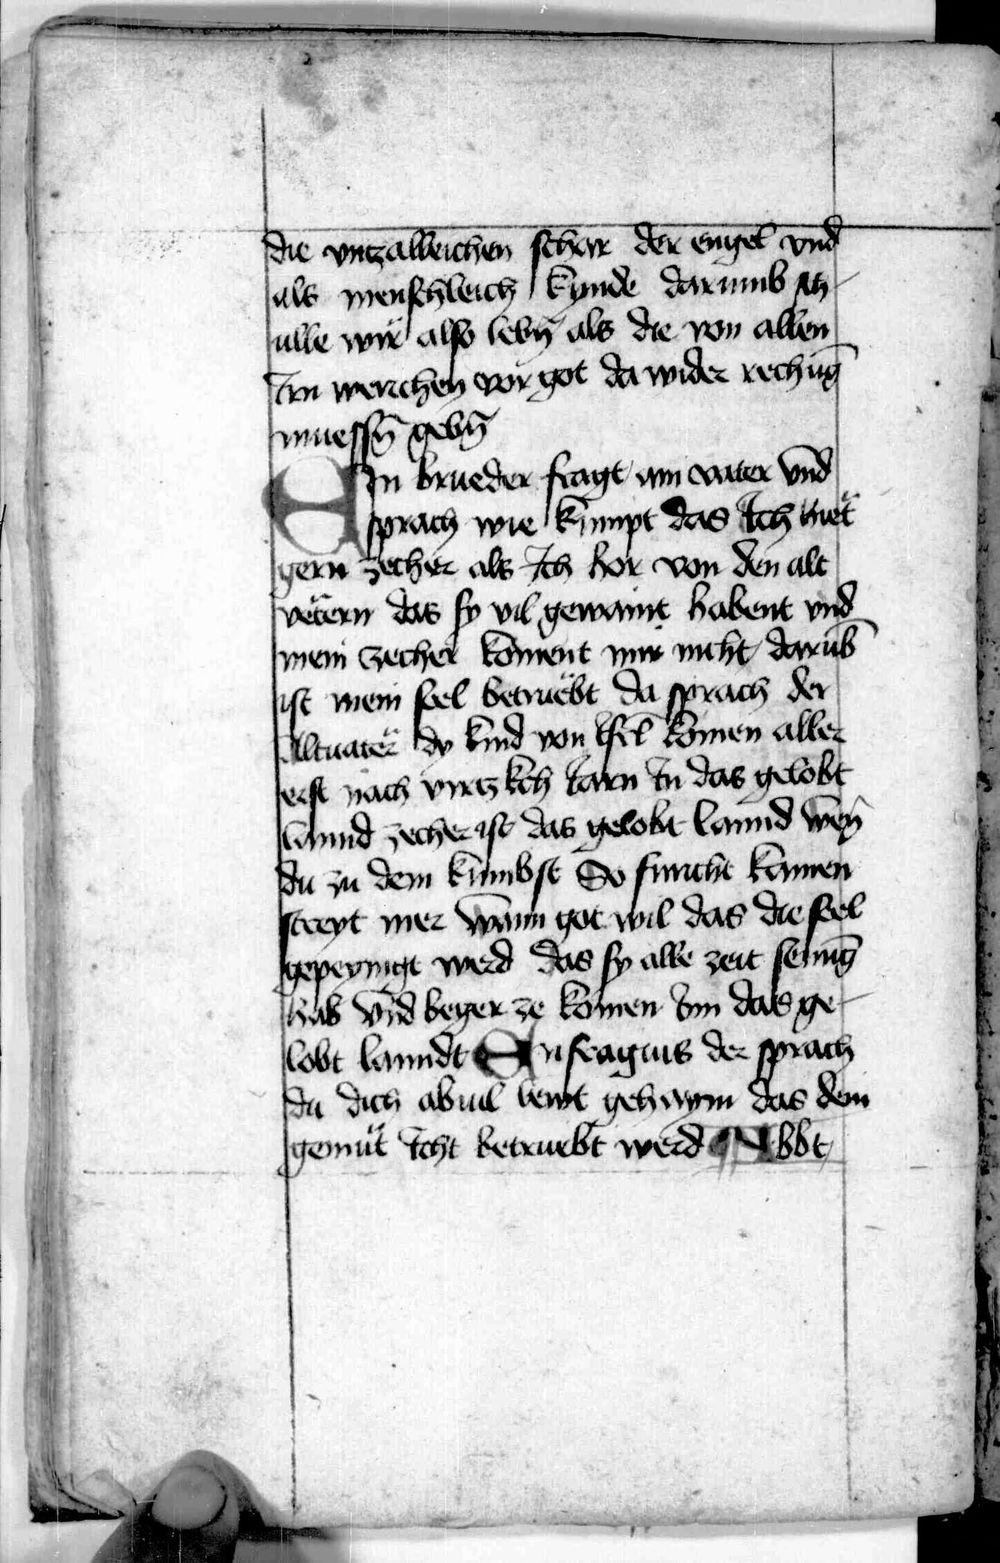 die vntzalleichen schar der engel vnd
als menschleich kunde darumb sch
ulle wir also lebn̄ als die von allen
Irn werchen vor got da wider rechūg
muessn̄ gebn̄
Ein brueder fragt ain vater vnd
sprach wie kumpt das Ich hiet
gern zecher als Ich hor von den alt
vetern das sy vil gewaint habent vnd
mein zecher koment mir nicht darub̄
ist mein sel betruebt da sprach der
altuater dy kind von isrl komen aller
erst nach virtzkch Iarn In das gelobt
lannd zecher ist das gelobt lannd wen̄
du zu dem kumbst So furcht kainen
streyt mer wann got wil das die sel
gepeynigt werd das sy alle zeit senūg
hab vnd beger ze komen Inn das ge
lobt lanndt Ein fragtus der sprach
du dich ab uil lewt gehaym das dein
gemut Icht betruebt werd Abbt